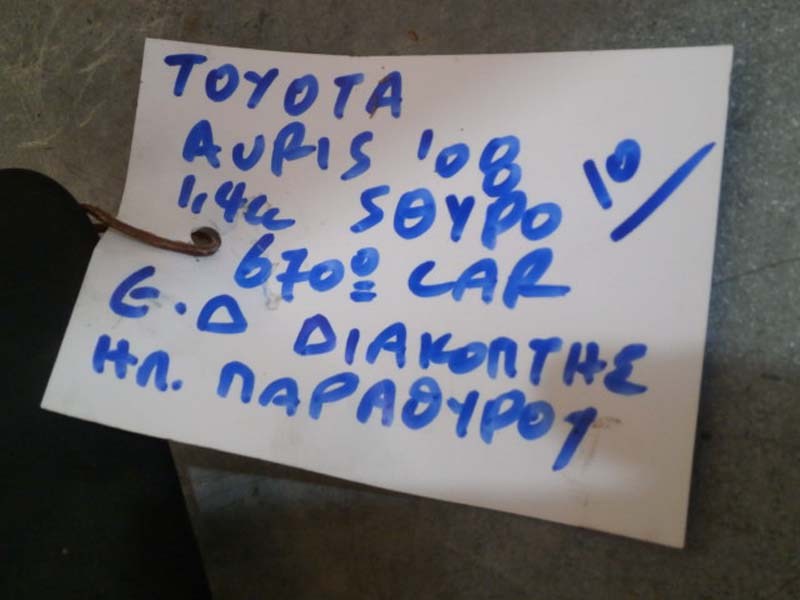 TOYOTA
AURIS '08 10/
1,4cc 5ΘΥΡΟ
670º CAR
Ε.Δ ΔΙΑΚΟΠΤΗΣ
ΗΛ. ΠΑΡΑΘΥΡΟΥ